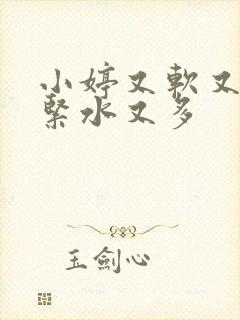 小婷又軟又
緊水又多
玉劍心